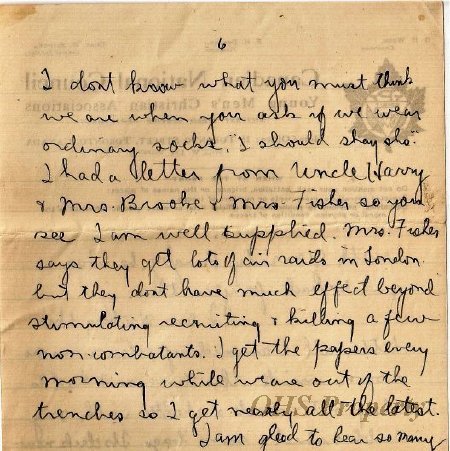 6
I dont know what you must think
we are when you ask if we wear
ordinary socks, "I should shay sho"
I had a letter from Uncle Harry
& Mrs. Brooke & Mrs. Fisher so you
see I am well supplied. Mrs. Fisher
says they get lots of air raids in London
but they dont have much effect beyond
stimulating recruiting & killing a few
non combatants. I get the papers every
morning while we are out of the
trenches so I get nearly all the latest.
OHS Property
I am glad to hear so many